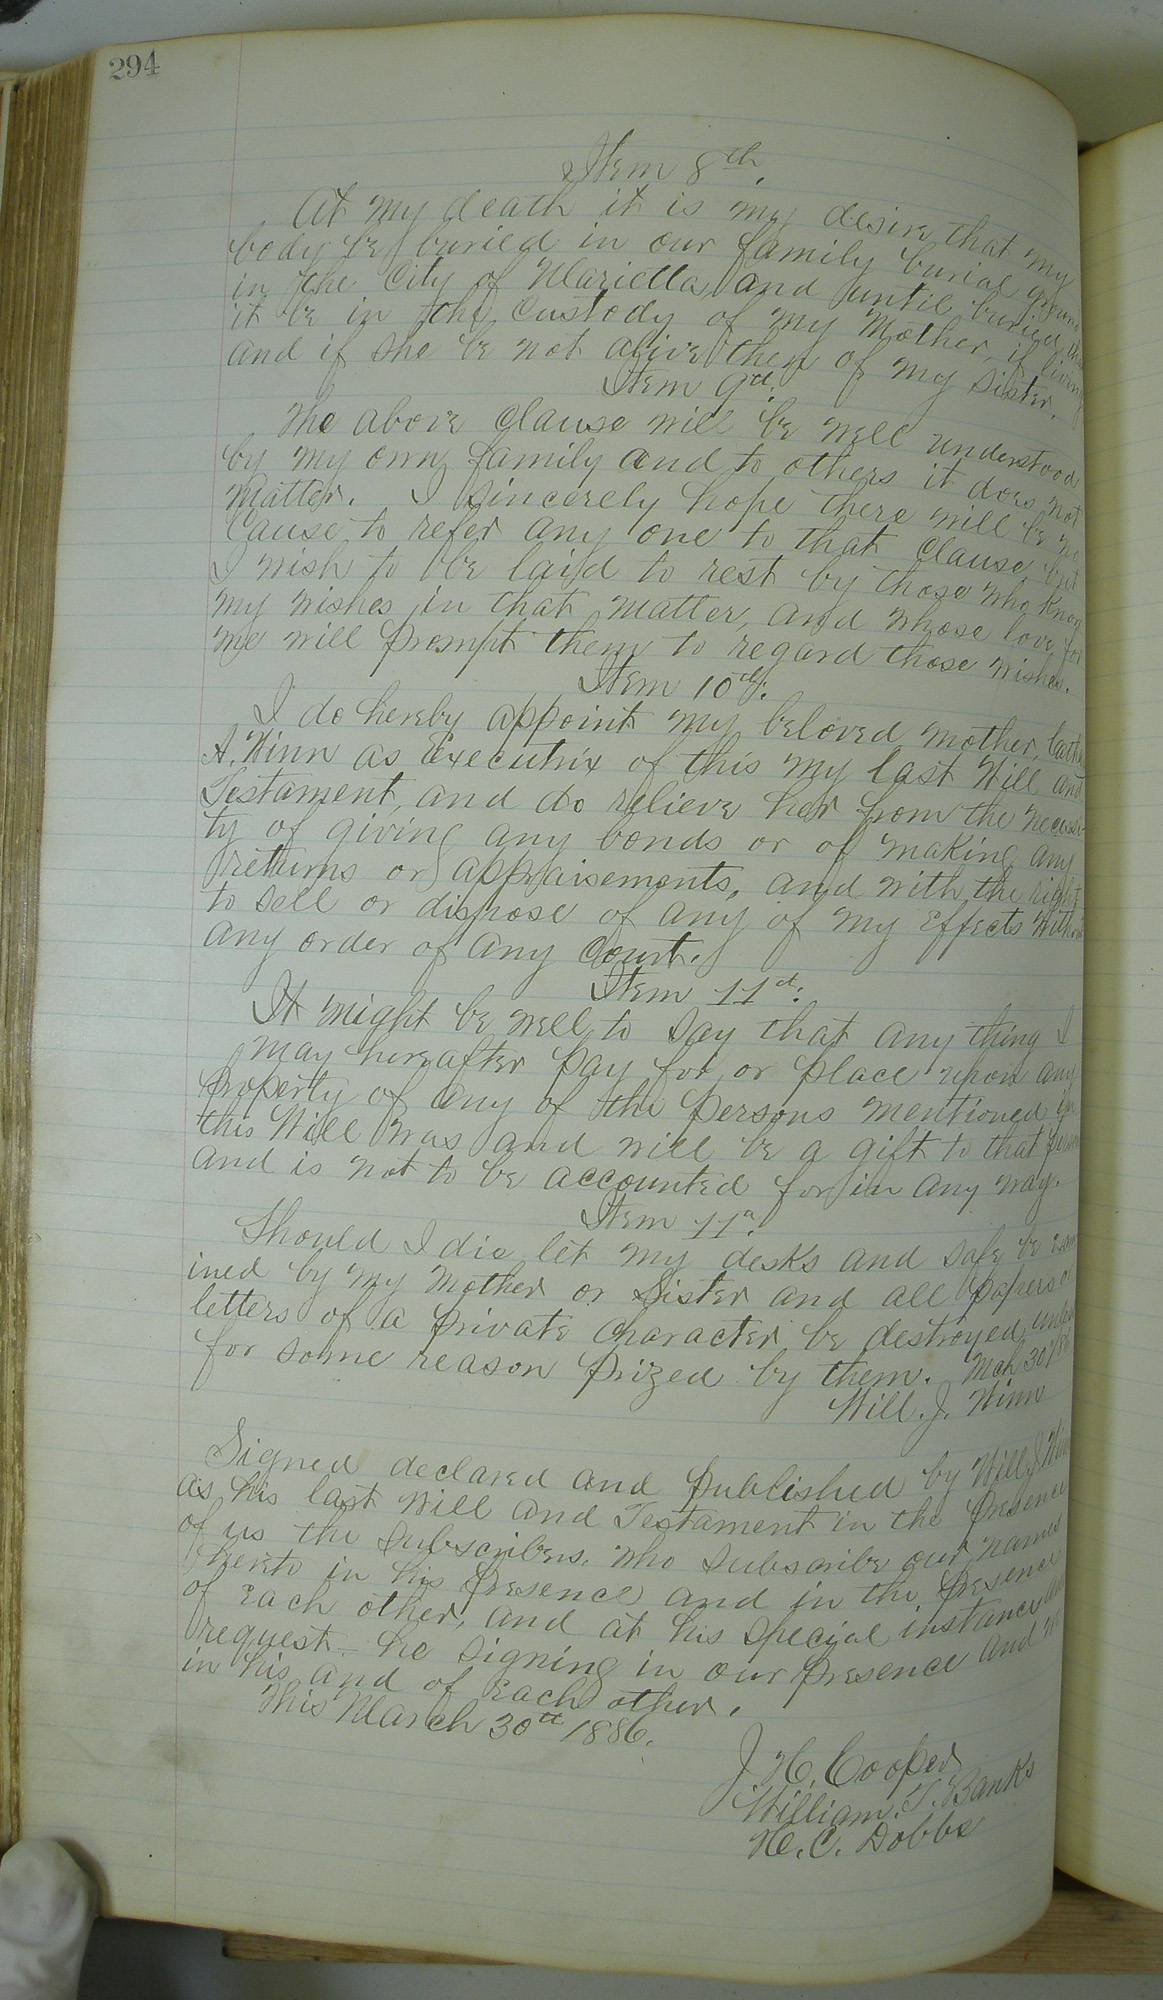 294
Item 8th.
At my death it is my desire that my
body be buried in our family burial ground
in the City of Marietta, and until buried, that
it be in the custody of my Mother, if living
and if she be not alive then of my sister.
Item 9th.
The above clause will be well understood
by my own family and to others it does not
matter. I sincerely hope there will be no
cause to refer any one to that clause but
I wish to be laid to rest by those who know
my wishes in that matter, and whose love for
me will prompt them to regard those wishes.
Item 10th.
I do hereby appoint my beloved mother,
A. Winn as Executrix of this my last Will and
Testament, and do relieve her from the necessi-
ty of giving any bonds or of making any
returns or appraisements, and with the right
to sell or dispose of any of my Effects without
any order of any Court.
Item 11th:
It might be well to say that any thing I
may hereafter pay for or place upon any
property of any of the persons mentioned in
this Will was and will be a gift to that person
and is not to be accounted for in any way.
Item 11th
Should I die let my desks and safe be exam
ined by my Mother or Sister and all papers or
letters of a private character be destroyed, unless
for some reason prized by them. Mch 30/86
Will. J. Winn
Signed declared and published by Will J. Winn
as his last will and Testament in the presence
of us the subscribers, who subscribe our names
hereto in his presence and in the presence
of Each other, and at his special instance and
request - he signing in our presence and we
in his and of Each other.
This March 30th 1886.
J. H. Cooper
William. T. Banks
H. C. Dobbs